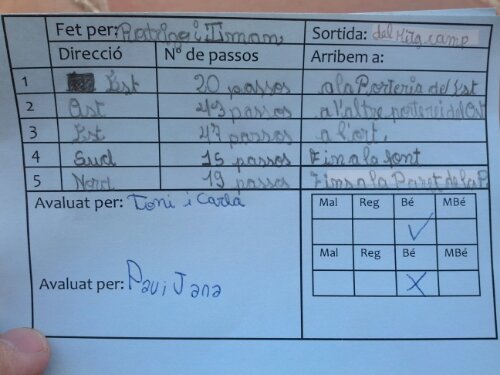 Fet per: i Timam Sortida: del Mitg camp
Direcció Nº de passos Arribem a:
1 Est 20 passos a la Porteria del Est
2 Ost 49 passos a l'altre porteri del Ost
3 Est 47 passos a l'ort.
4 Sud 15 passos Fin a la font
5 Nord 19 passos Fins a la Paret de la
Avaluat per: Toni i Carla
Mal Reg Bé MBé
Mal Reg Bé MBé
Avaluat per: Pau i Jana